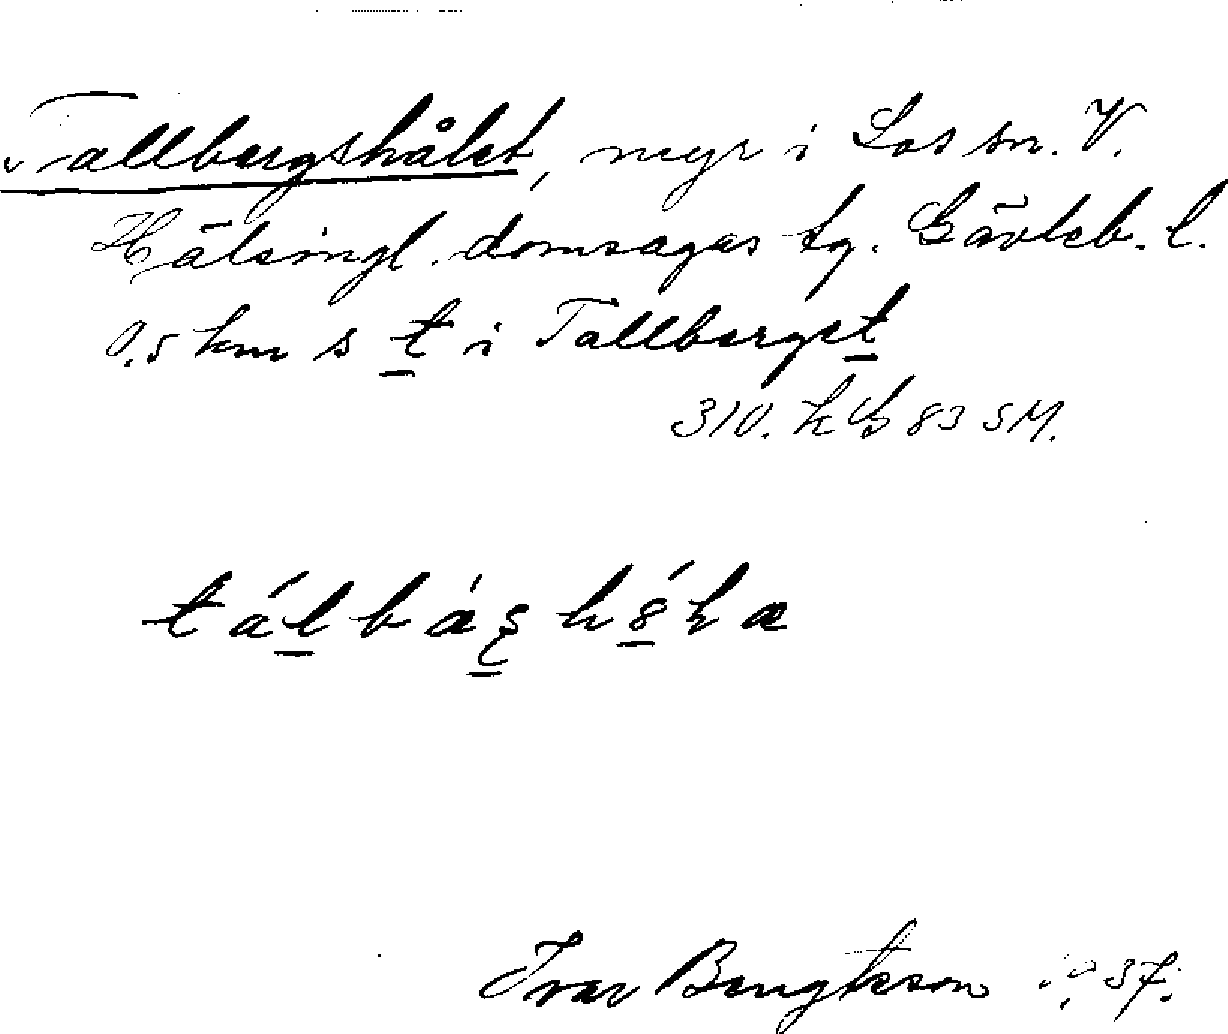 Tallbergshålet, myr i Los sn. V.
Hälsingl. domsagas tg. Gävleb. l.
0,5 km s t i Tallberget
310. k 83 SM.
Ivar Bengtsson 1937.